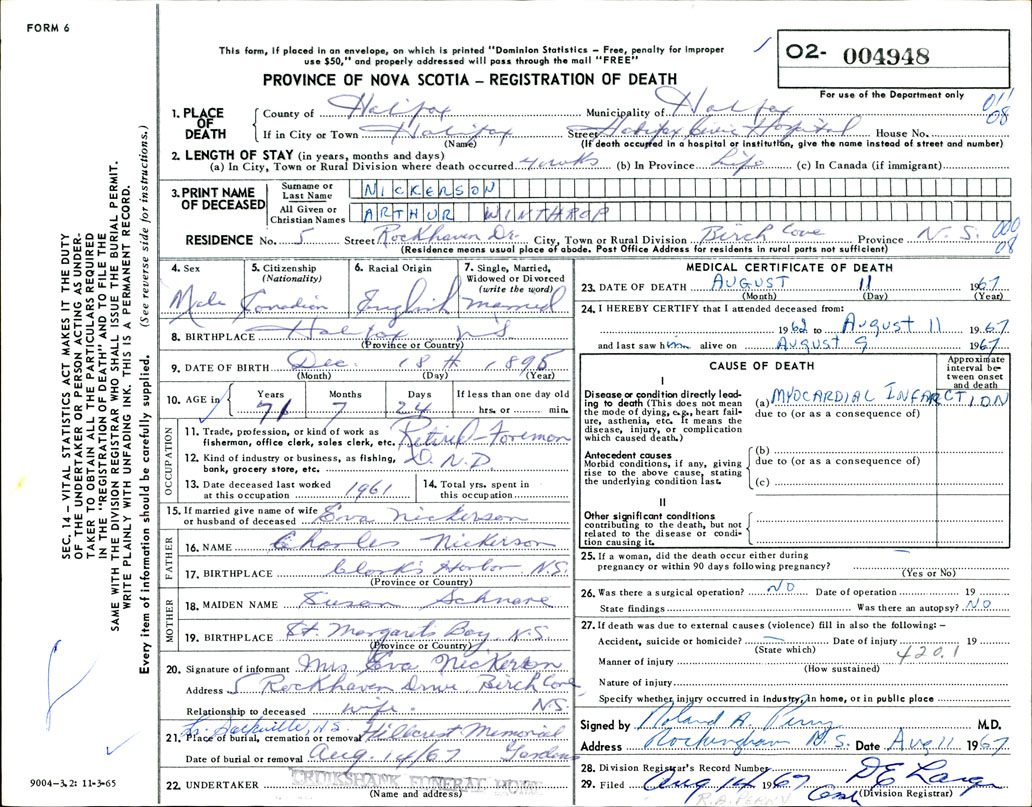 FORM 6
This form, if placed in an envelope, on which is printed "Dominion Statistics – Free, penalty for improper
use $50," and properly addressed will pass through the mail "FREE"
PROVINCE OF NOVA SCOTIA – REGISTRATION OF DEATH
O2- 004948
For use of the Department only
011
08
1. PLACE OF DEATH
County of Halifax Municipality of Halifax
If in City or Town Halifax Street Halifax Civic Hospital House No.
(Name) (If death occurred in a hospital or institution, give the name instead of street and number)
2. LENGTH OF STAY (in years, months and days)
(a) In City, Town or Rural Division where death occurred. 4 wks (b) In Province Life (c) In Canada (if immigrant)
3. PRINT NAME OF DECEASED
Surname or Last Name NICKERSON
All Given or Christian Names ARTHUR WINTHROP
RESIDENCE No. 5 Street Rockhaven Dr. City, Town or Rural Division Birch Cove Province N.S. 000
08
(Residence means usual place of abode. Post Office Address for residents in rural parts not sufficient)
4. Sex Male
5. Citizenship (Nationality) Canadian
6. Racial Origin English
7. Single, Married, Widowed or Divorced (write the word) Married
8. BIRTHPLACE Halifax N S
(Province or Country)
9. DATE OF BIRTH Dec. 18th 1895
(Month) (Day) (Year)
10. AGE in Years Months Days If less than one day old
71 7 24 hrs. or min.
OCCUPATION
11. Trade, profession, or kind of work as fisherman, office clerk, sales clerk, etc. Retired - Foreman
12. Kind of industry or business, as fishing, bank, grocery store, etc. D.N.D.
13. Date deceased last worked at this occupation 1961
14. Total yrs. spent in this occupation
15. If married give name of wife or husband of deceased Eva Nickerson
FATHER
16. NAME Charles Nickerson
17. BIRTHPLACE Clark's Harbor N.S.
(Province or Country)
MOTHER
18. MAIDEN NAME Susan Schnare
19. BIRTHPLACE St. Margarets Bay, N.S.
(Province or Country)
20. Signature of informant Mrs Eva Nickerson
Address 5 Rockhaven Drive Birch Cove
N.S.
Relationship to deceased wife.
Lr. Sackville, N.S.
21. Place of burial, cremation or removal Hillcrest Memorial
Gardens
Date of burial or removal Aug. 14/67
22. UNDERTAKER CRUIKSHANK FUNERAL HOME
(Name and address)
MEDICAL CERTIFICATE OF DEATH
23. DATE OF DEATH AUGUST 11 1967
(Month) (Day) (Year)
24. I HEREBY CERTIFY that I attended deceased from:
1962 to August 11 1967
and last saw him alive on August 9 1967
CAUSE OF DEATH
Approximate interval between onset and death
I
Disease or condition directly leading to death (This does not mean the mode of dying, e.g., heart failure, asthenia, etc. It means the disease, injury, or complication which caused death.)
(a) MYOCARDIAL INFARCTION
due to (or as a consequence of)
Antecedent causes
Morbid conditions, if any, giving rise to the above cause, stating the underlying condition last.
(b)
due to (or as a consequence of)
(c)
II
Other significant conditions
contributing to the death, but not related to the disease or condition causing it.
25. If a woman, did the death occur either during pregnancy or within 90 days following pregnancy?
(Yes or No)
26. Was there a surgical operation? NO Date of operation 19
State findings Was there an autopsy? NO
27. If death was due to external causes (violence) fill in also the following: –
Accident, suicide or homicide? Date of injury 19
(State which) 420.1
Manner of injury
(How sustained)
Nature of injury
Specify whether injury occurred in Industry, in home, or in public place
Signed by Roland A. Perry M.D.
Address Rockingham N.S. Date Aug 11 1967
28. Division Registrar's Record Number
29. Filed Aug 14 1967 D E Lang
(Division Registrar)
R.A. PERRY
SEC. 14 – VITAL STATISTICS ACT MAKES IT THE DUTY
OF THE UNDERTAKER OR PERSON ACTING AS UNDER-
TAKER TO OBTAIN ALL THE PARTICULARS REQUIRED
IN THE "REGISTRATION OF DEATH" AND TO FILE THE
SAME WITH THE DIVISION REGISTRAR WHO SHALL ISSUE THE BURIAL PERMIT.
WRITE PLAINLY WITH UNFADING INK. THIS IS A PERMANENT RECORD.
Every item of information should be carefully supplied. (See reverse side for instructions.)
9004–3.2: 11-3-65